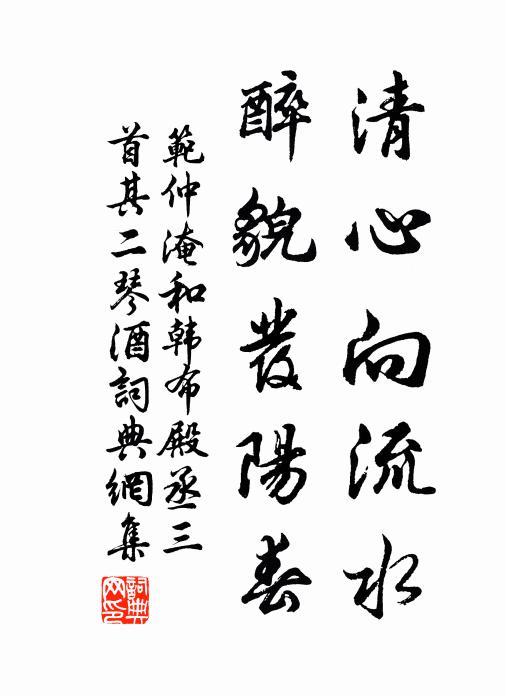 清心向流水
醉貌發陽春
範仲淹和韩布殿丞三
首其二琴酒詞典網集
詞典網印